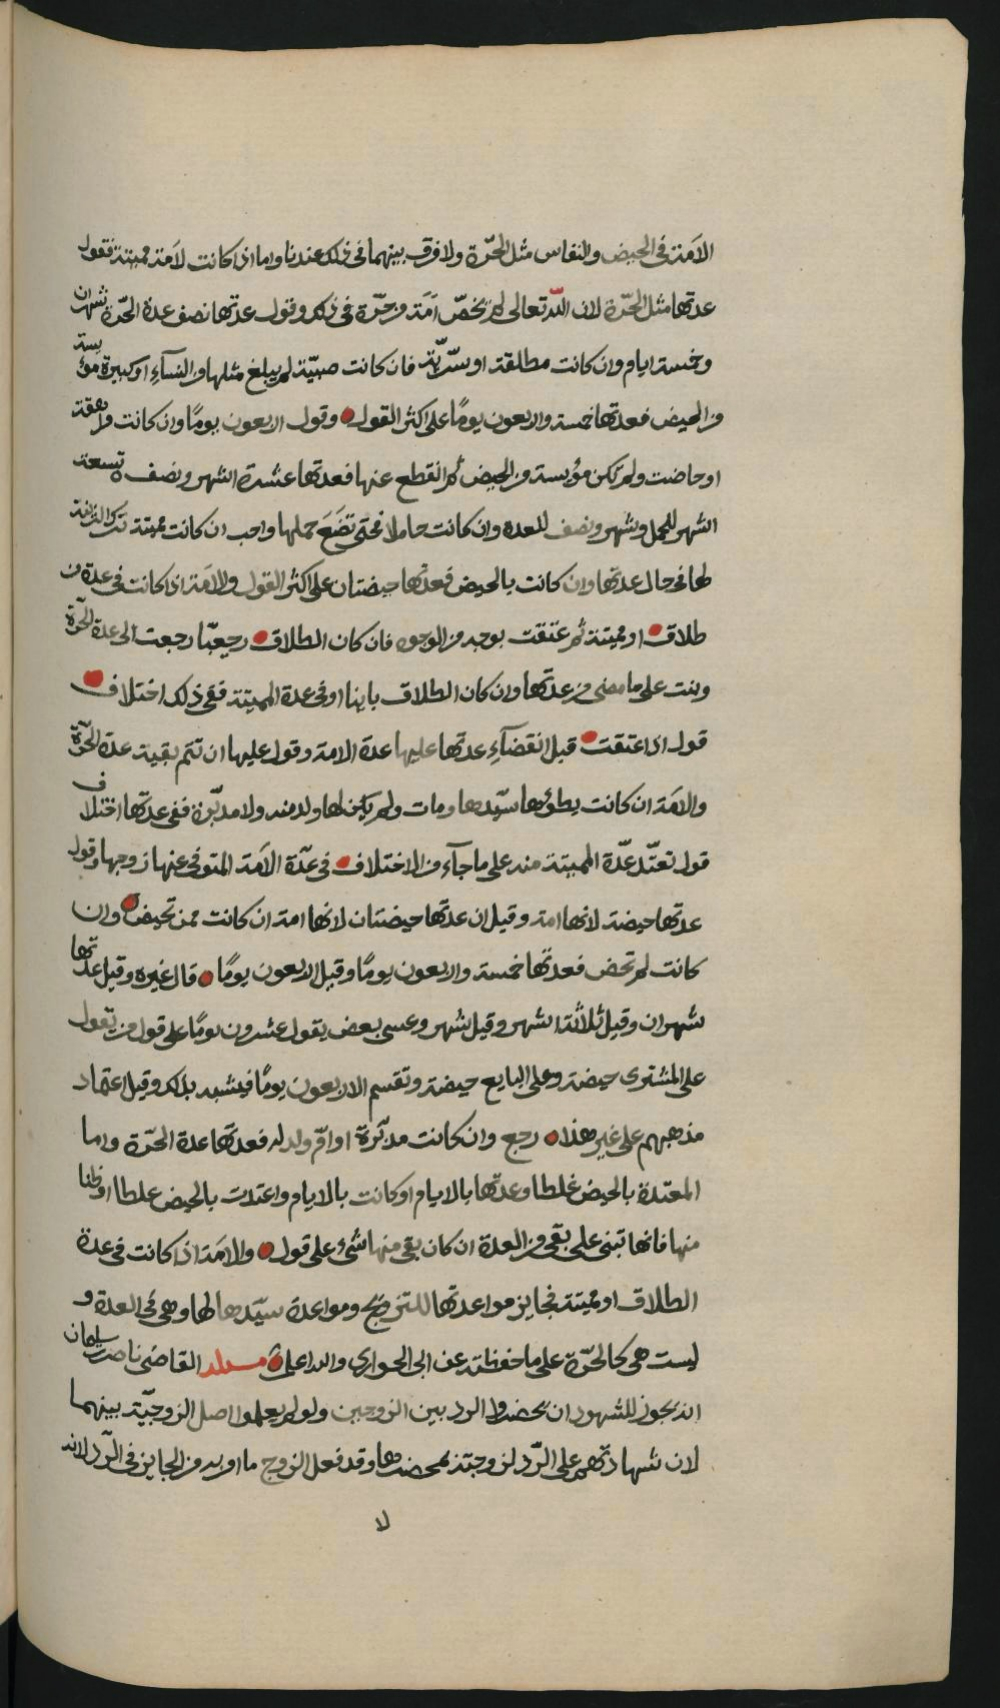 الامة في الحيض والنفاس مثل الحرّة ولا فرق بينهما في ذلك عندنا واما اذا كانت لامة مميتة فقول
عدتها مثل الحرّة لان الله تعالى لم يخصّ اَمَة من حرّة في ذلك وقول عدتها نصف عدة الحرّة شهران
وخمسة ايام وان كانت مطلقة او سرّيّة فان كانت صبيّة لم يبلغ مثلها من النسآءِ او كبيرة مؤيسة
من الحيض فعدتها خمسة واربعون يومًا على اكثر القول وقول اربعون يومًا وان كانت مراهقة
او حاضت ولم تكن مؤيسة من الحيض ثم انقطع عنها فعدتها عشرة اشهر ونصف تسعة
اشهر للحمل وشهر ونصف للعدة وان كانت حاملا فحتى تضَعَ حملها واحب ان كانت مميتة ترك الزينة
لها في حال عدتها وان كانت بالحيض فعدتها حيضتان على اكثر القول والامَة اذا كانت في عدة من
طلاق او مميتة ثم عتقت بوجه من الوجوه فان كان الطلاق رجعيّا رجعت الى عدة الحرّة
وبنت على ما مضى من عدتها وان كان الطلاق باينا او في عدة المميتة ففي ذلك اختلاف
قول اذا عتقت قبل انقضآءِ عدتها عليها عدة الامة وقول عليها ان تتم بقية عدة الحرّة
والامَة ان كانت يطؤها سيّدها ومات ولم يكن لها ولد منه ولا مدبّرة ففي عدتها اختلاف
قول تعتّد عدّة المميتة منه على ما جآء من الاختلاف في عدّة الاَمَة المتوفى عنها زوجها وقول
عدتها حيضة لانها امة وقيل ان عدتها حيضتان لانها امة ان كانت ممن تحيض وان
كانت لم تحض فعدتها خمسة واربعون يومًا وقيل اربعون يومًا قال غيره وقيل عدتها
شهران وقيل ثلاثة اشهر وقيل شهر وعسى بعض يقول عشرون يومًا على قول من يقول
على المشترى حيضة وعلى البايع حيضة وتقسم الاربعون يومًا فيشبه بذلك وقيل اعتماد
مذهبهم على غير هذا رجع وان كانت مدبّرة او امّ ولد له فعدتها عدة الحرّة واما
المعتدة بالحيض غلطا وعدتها بالايام او كانت بالايام واعتدت بالحيض غلطا او ظنا
منها فانها تبنى على بقى من العدة ان كان بقى منها شئ على قول والامَة اذا كانت في عدة
الطلاق او مميتة فجايز مواعدتها للتزويج ومواعدة سيّدها لها وهى في العدة و
ليست هى كالحرّة على ما حفظته عن ابى الحوارى والله اعلم مسئلة القاضى ناصر بن سليمان
انه يجوز للشهود ان يحضروا الرد بين الزوجين ولو لم يعلموا اصل الزوجيّة بينهما
لان شهادتهم على الرّد لزوجته بمحضرها وقد فعل الزوج ما امر به من الجايز في الرّد لانه
لا